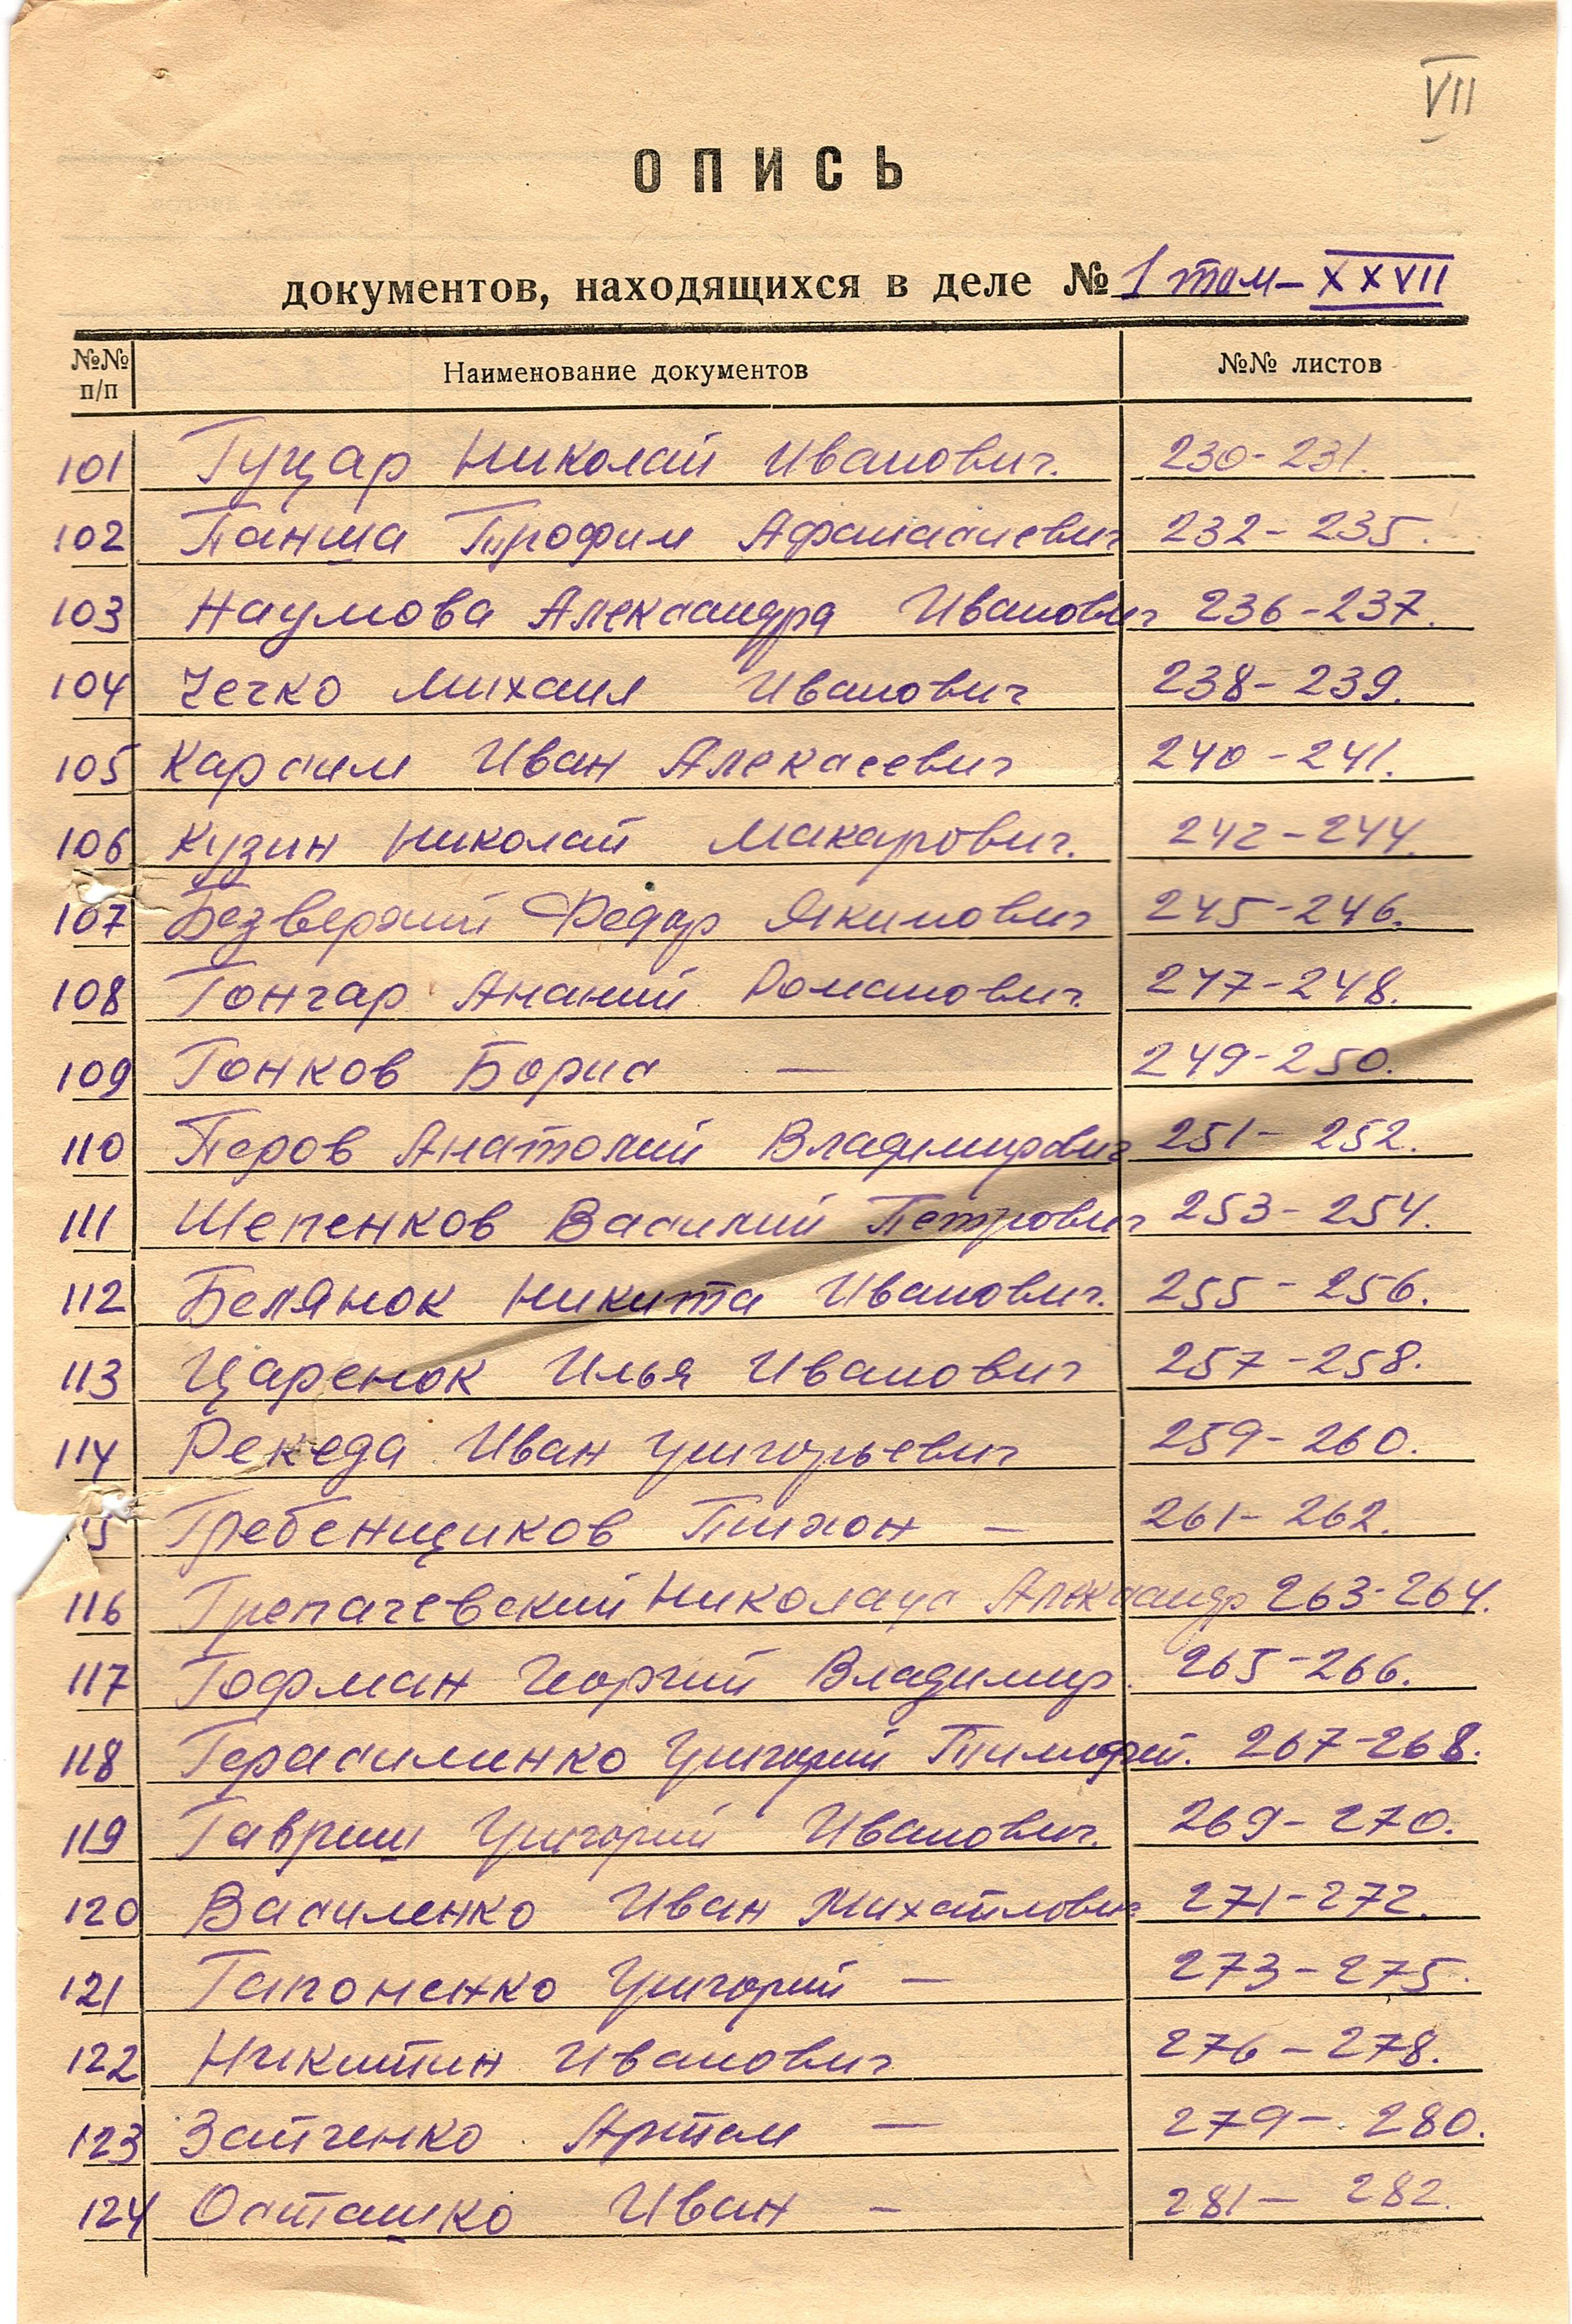 VII
ОПИСЬ
документов, находящихся в деле № 1 том – XXVII
№№ п/п Наименование документов №№ листов
101 Гуцар Николай Иванович. 230-231.
102 Панша Трофим Афанасиевич 232-235.
103 Наумова Александра Иванович 236-237.
104 Чечко Михаил Иванович 238-239.
105 Карсим Иван Алексеевич 240-241.
106 Кузин Николай Макарович. 242-244.
107 Безверхий Федор Якимович 245-246.
108 Гончар Ананий Романович. 247-248.
109 Гонков Борис — 249-250.
110 Перов Анатолий Владимирович 251-252.
111 Шепенков Василий Петрович 253-254.
112 Белянок Никита Иванович. 255-256.
113 Царенок Илья Иванович 257-258.
114 Рекеда Иван Григорьевич 259-260.
5 Гребенщиков Тихон — 261-262.
116 Грепачевский Александр 263-264.
117 Гофман Георгий Владимир. 265-266.
118 Герасименко Григорий Тимофей. 267-268.
119 Гавриш Григорий Иванович. 269-270.
120 Василенко Иван Михайлович 271-272.
121 Гапоненко Григорий — 273-275.
122 Никитин Иванович 276-278.
123 Зайченко Артем — 279-280.
124 Осташко Иван — 281-282.